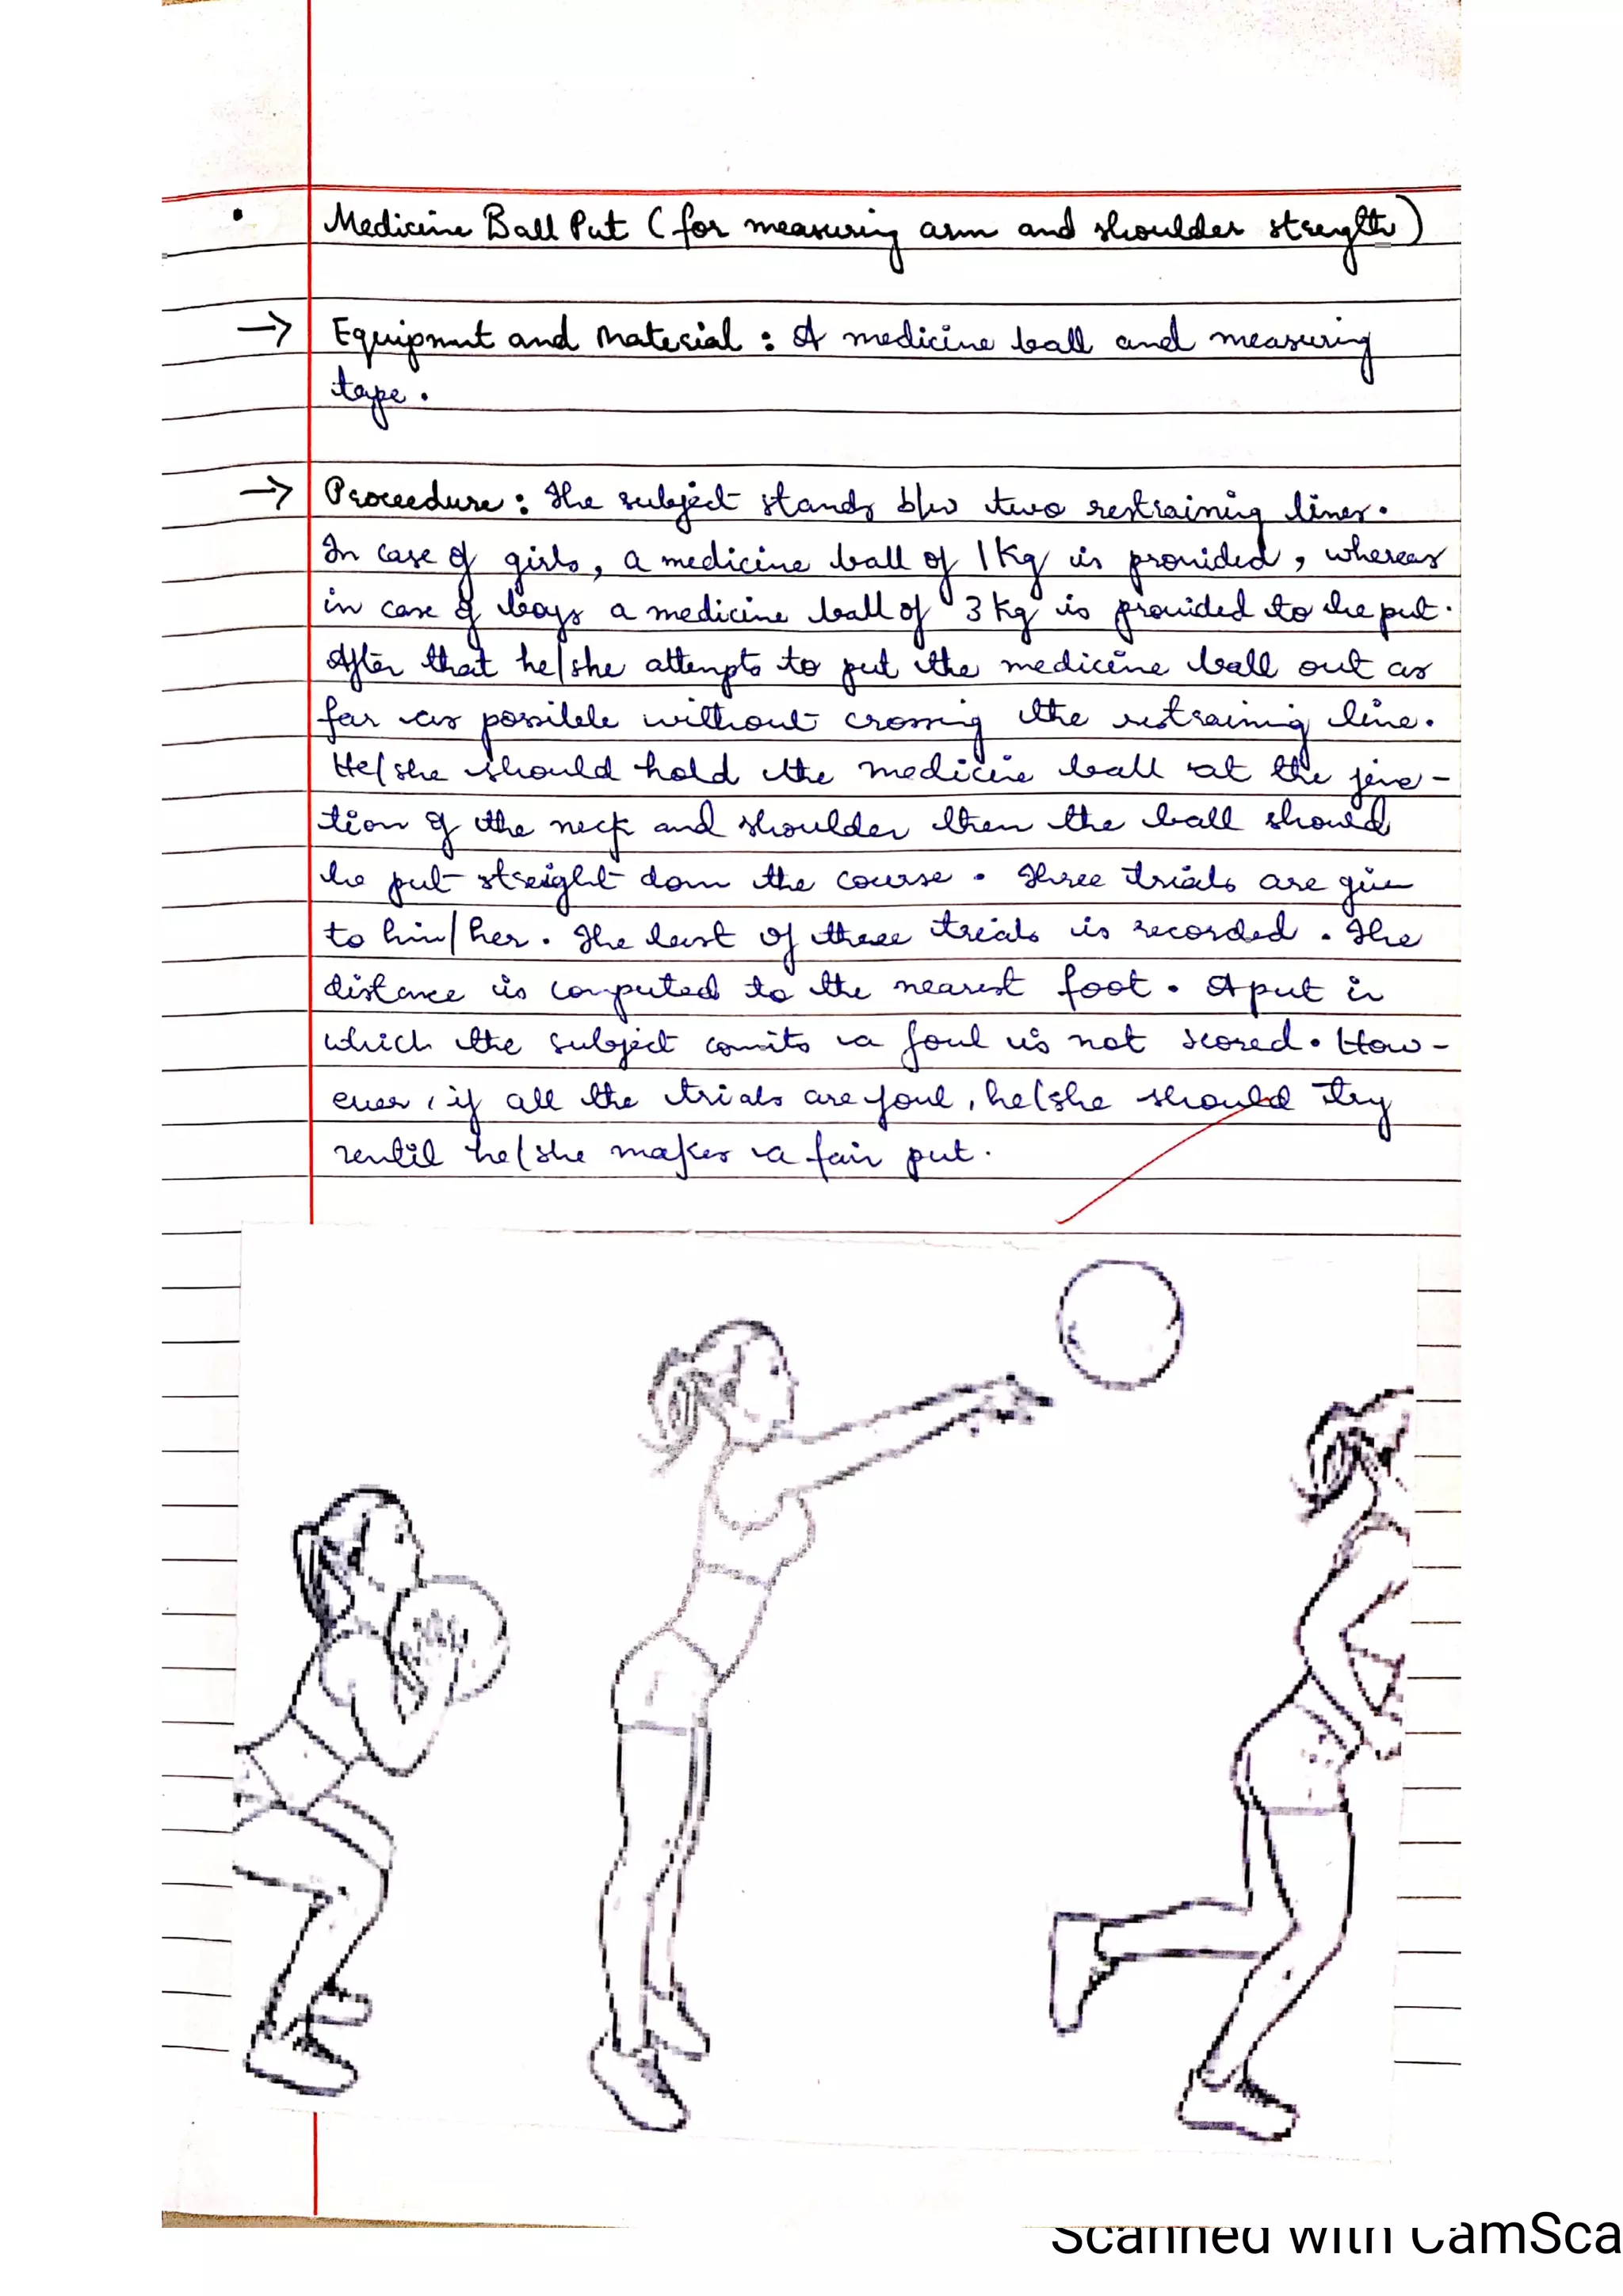 • Medicine Ball Put (for measuring arm and shoulder strength)
→ Equipmnt and Material : A medicine ball and measuring
tape.
→ Proceedure : The subject stands b/w two restraining lines.
In case of girls, a medicine ball of 1 Kg is provided, whereas
in case of boys a medicine ball of 3 kg is provided to be put.
After that he/she attempts to put the medicine ball out as
far as possible without crossing the restraining line.
He/she should hold the medicine ball at the
tion of the neck and shoulder then the ball should
be put straight down the course. Three trials are given
to him/her. The best of three trials is recorded. The
distance is computed to the nearest foot. A put in
which the subject commits a foul is not scored. How-
ever, if all the trials are foul, he/she should try
until he/she makes a fair put.
Scanned with CamSca